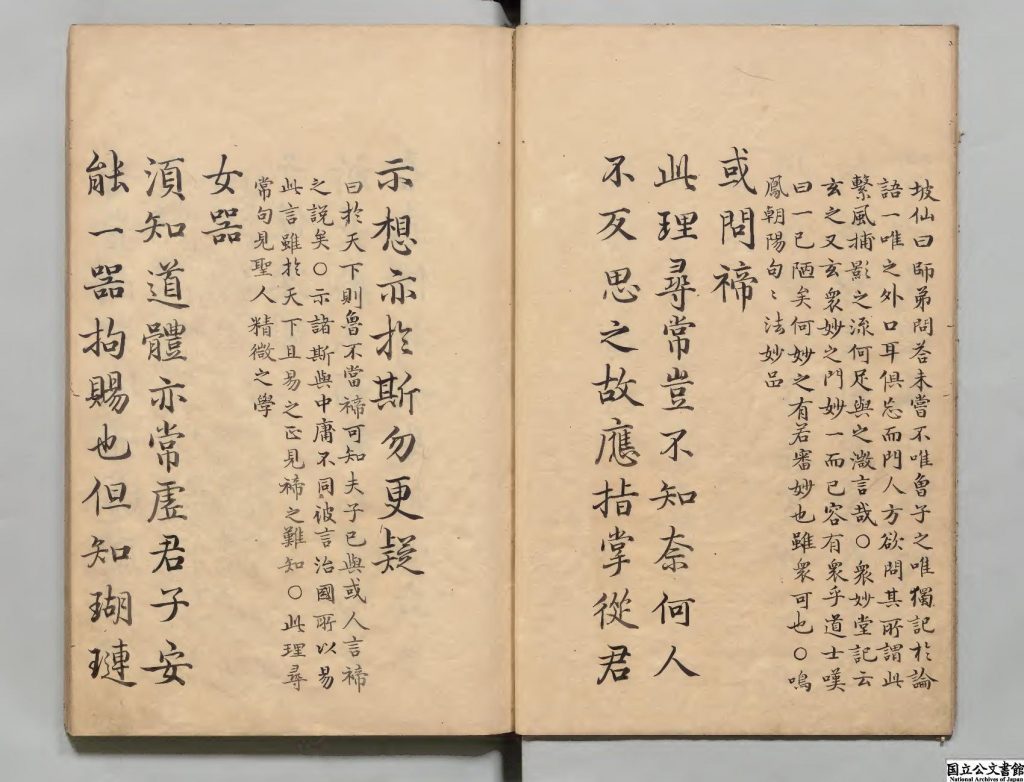 坡仙曰師弟問荅未嘗不唯曾子之唯獨記於論
語一唯之外口耳俱忘而門人方欲問其所謂此
繫風捕影之流何足與之微言哉○衆妙堂記云
玄之又玄衆妙之門妙一而已容有衆乎道士嘆
曰一已陋矣何妙之有若審妙也雖衆可也○鳴
鳳朝陽句〻法妙品
或問禘
此理尋常豈不知奈何人
不反思之故應指掌從君
示想亦於斯勿更疑
曰於天下則魯不當禘可知夫子已與或人言禘
之説矣○示諸斯與中庸不同彼言治國所以易
此言雖於天下且易之正見禘之難知○此理尋
常句見聖人精微之學
女器
須知道體亦常虛君子安
能一器拘賜也但知瑚璉
国立公文書館
National Archives of Japan